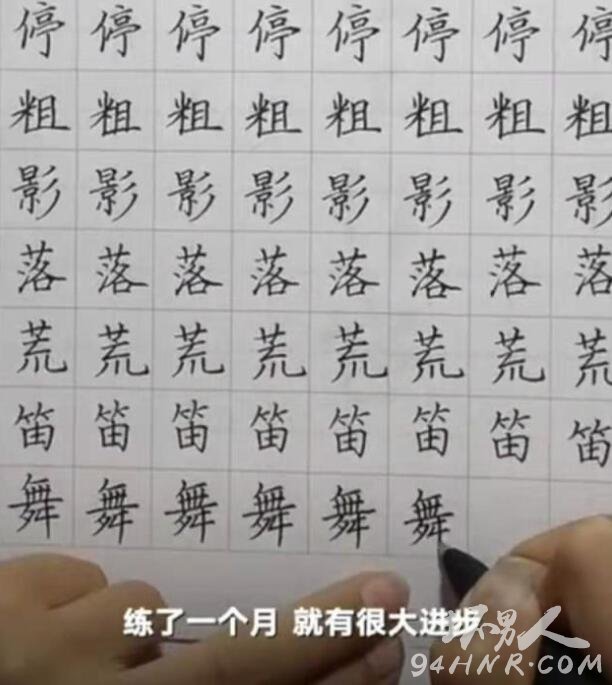 停 停 停 停 停 停 停 停
粗 粗 粗 粗 粗 粗 粗 粗
影 影 影 影 影 影 影 影
落 落 落 落 落 落 落 落
荒 荒 荒 荒 荒 荒 荒 荒
笛 笛 笛 笛 笛 笛 笛 笛
舞 舞 舞 舞 舞 舞
练了一个月 就有很大进步
坏男人
94HNR.COM